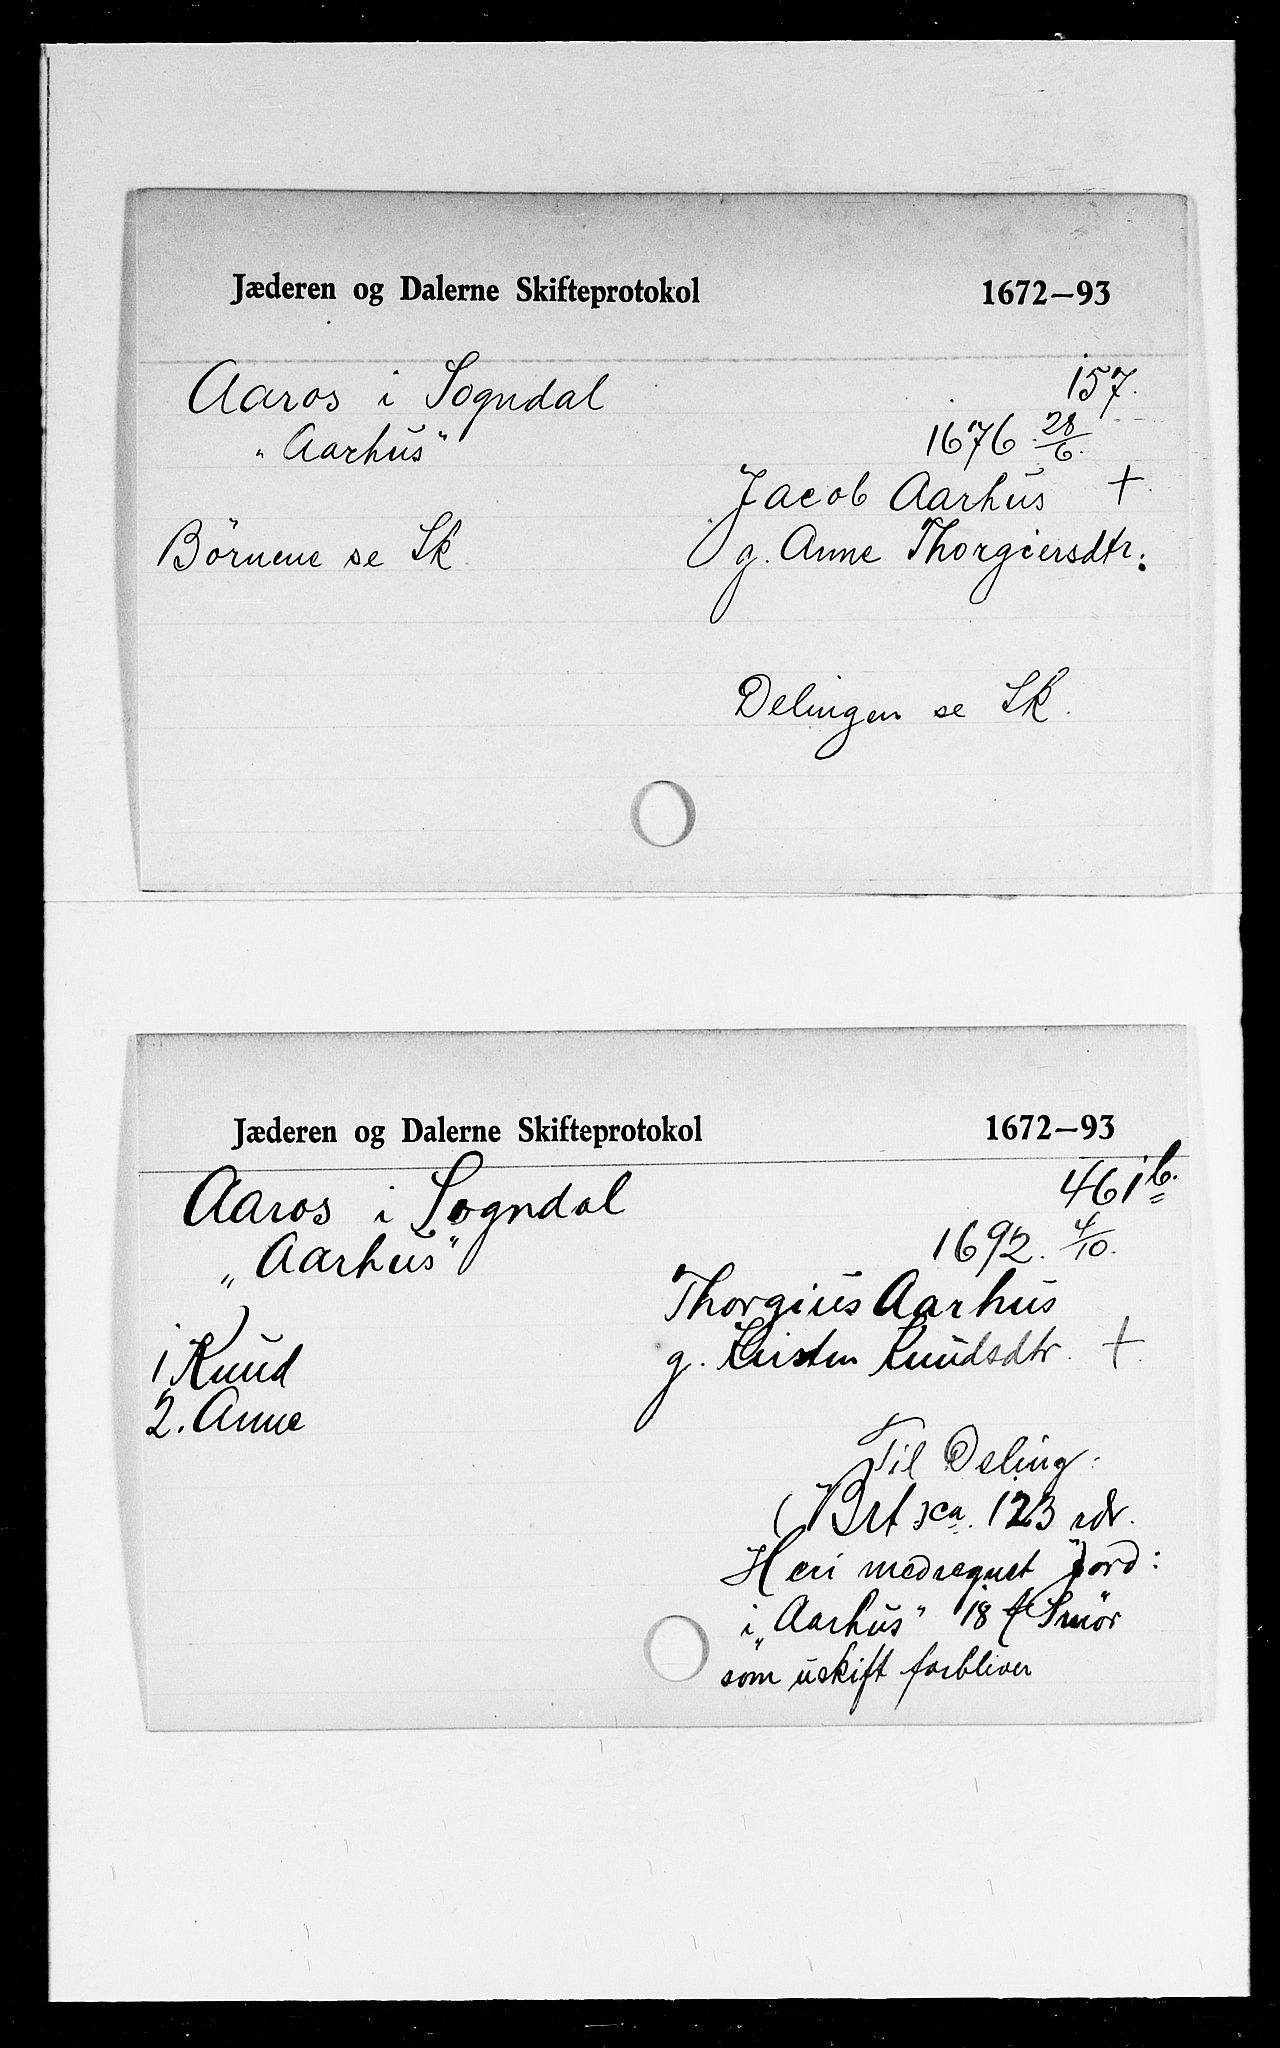 Jæderen og Dalerne Skifteprotokol 1672–93
Aaros i Sogndal 157.
"Aarhus" 1676 28/6.
Jacob Aarhus +.
Börnene se Sk. g. Anne Thorgiersdtr.
Delingen se Sk.
Jæderen og Dalerne Skifteprotokol 1672–93
Aaros i Sogndal 461b.
„Aarhus" 1692. 4/10.
Thorgius Aarhus
1 Knud g. Kirsten Knudsdtr. +.
2. Anne
Til Deling:
(Brt ca. 123 rdr.
Heri medregnet Jord:
i „Aarhus" 18 Smör
som uskift forbliver